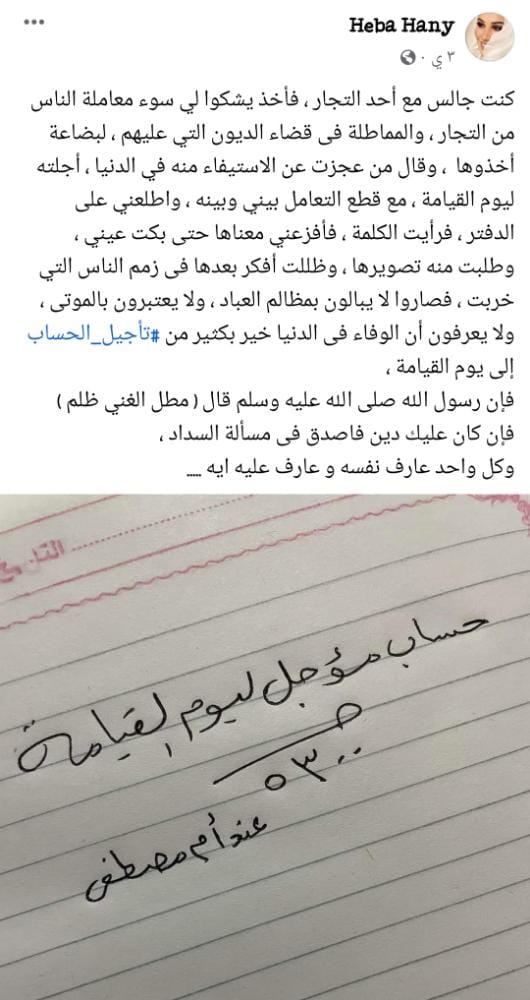 Heba Hany
٣ ي ·
كنت جالس مع أحد التجار ، فأخذ يشكوا لي سوء معاملة الناس
من التجار ، والمماطلة فى قضاء الديون التي عليهم ، لبضاعة
أخذوها ، وقال من عجزت عن الاستيفاء منه في الدنيا ، أجلته
ليوم القيامة ، مع قطع التعامل بيني وبينه ، واطلعني على
الدفتر ، فرأيت الكلمة ، فأفزعني معناها حتى بكت عيني ،
وطلبت منه تصويرها ، وظللت أفكر بعدها فى زمم الناس التي
خربت ، فصاروا لا يبالون بمظالم العباد ، ولا يعتبرون بالموتى ،
ولا يعرفون أن الوفاء فى الدنيا خير بكثير من #تأجيل_الحساب
إلى يوم القيامة ،
فإن رسول الله صلى الله عليه وسلم قال ( مطل الغني ظلم )
فإن كان عليك دين فاصدق فى مسألة السداد ،
وكل واحد عارف نفسه و عارف عليه ايه ....
التاريخ
حساب مؤجل ليوم القيامة
جـ
٥٣٠٠
عند أم مصطفى